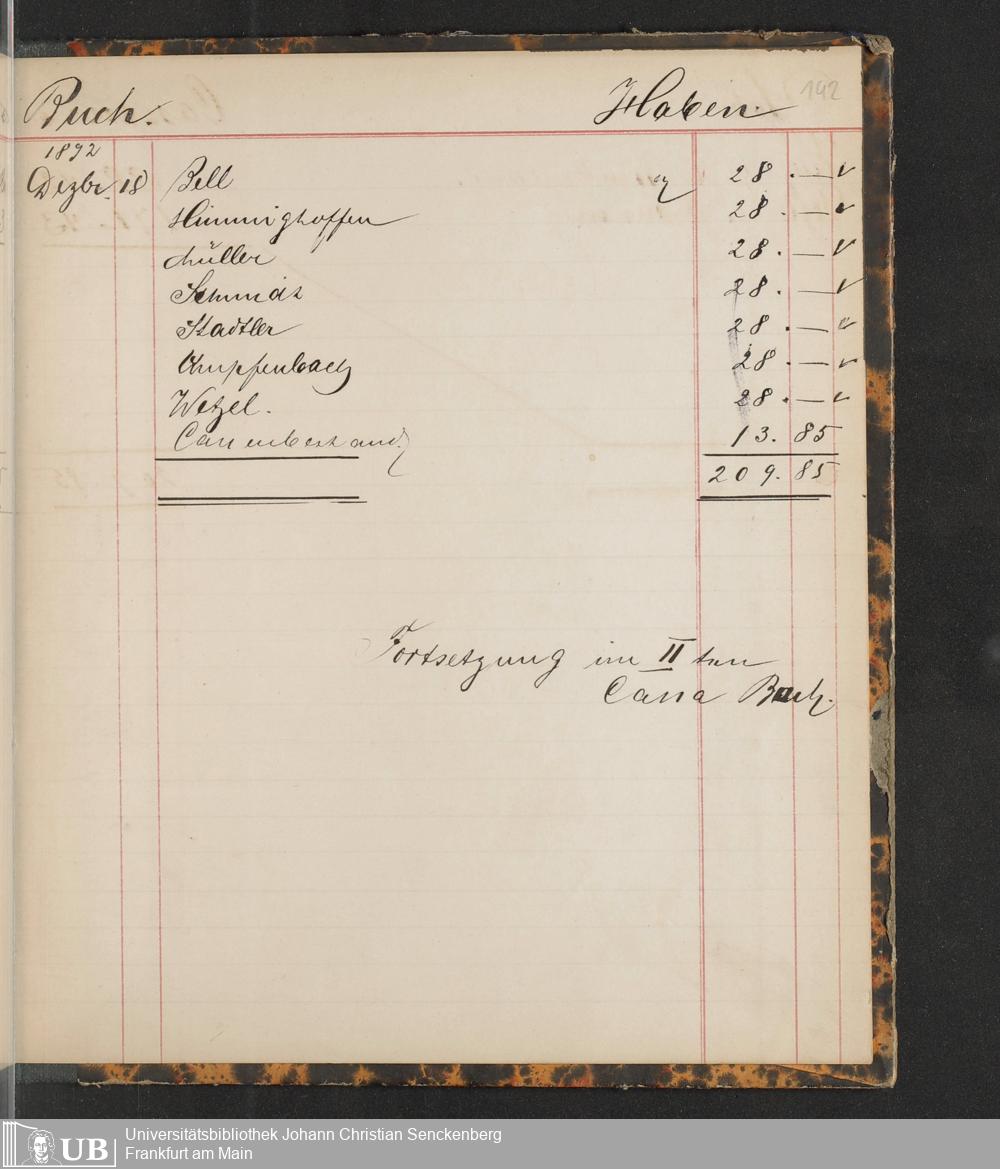 Buch. Haben. 142
1892
Dezbr. 18 Bell 28. — ✓
Himmighoffen 28. — ✓
Müller 28. — ✓
Schmidt 28. — ✓
Stadtler 28. — ✓
Umpfenbach 28. — ✓
Wetzel. 28. — ✓
Cassenbestand 13. 85
209. 85
Fortsetzung im II ten
Cassa Buch.
UB
Universitätsbibliothek Johann Christian Senckenberg
Frankfurt am Main